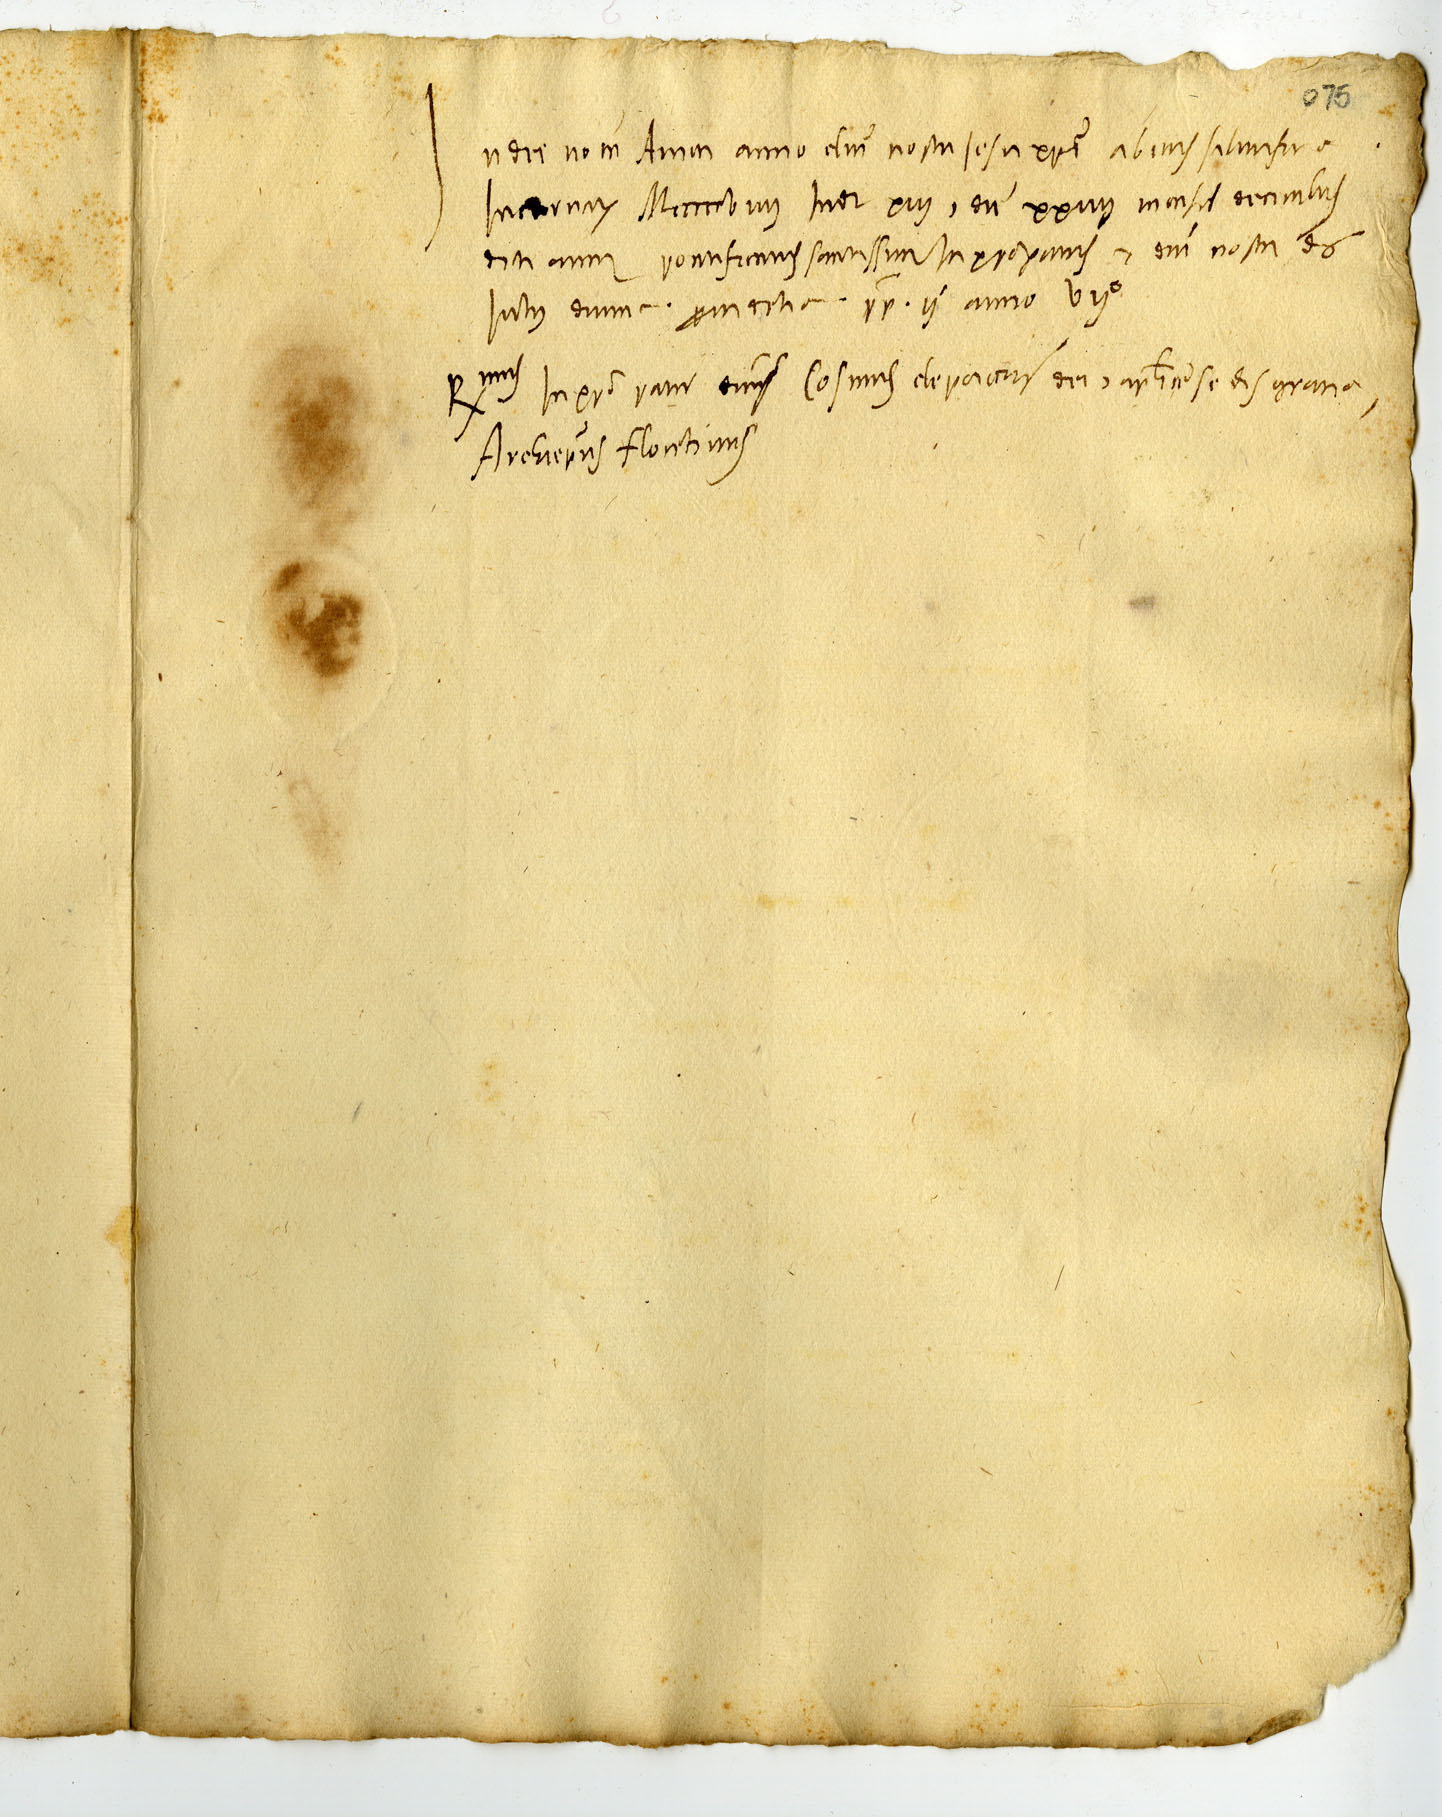 075
In dei nom Amen anno dni nostri Jesu xpi ab eius salutifera
Incarnat Mccccc viiij Indi xiij, die xxiiij mensis decembris
dicti anni pontificatus sanctissimi In xpo patris & dni nostri d
Julij divina providentia pp. ij anno vijº
Rmus In xpo pater dns Cosmus de paccijs dei & aplice sedis gratia
Archiepus Florentinus